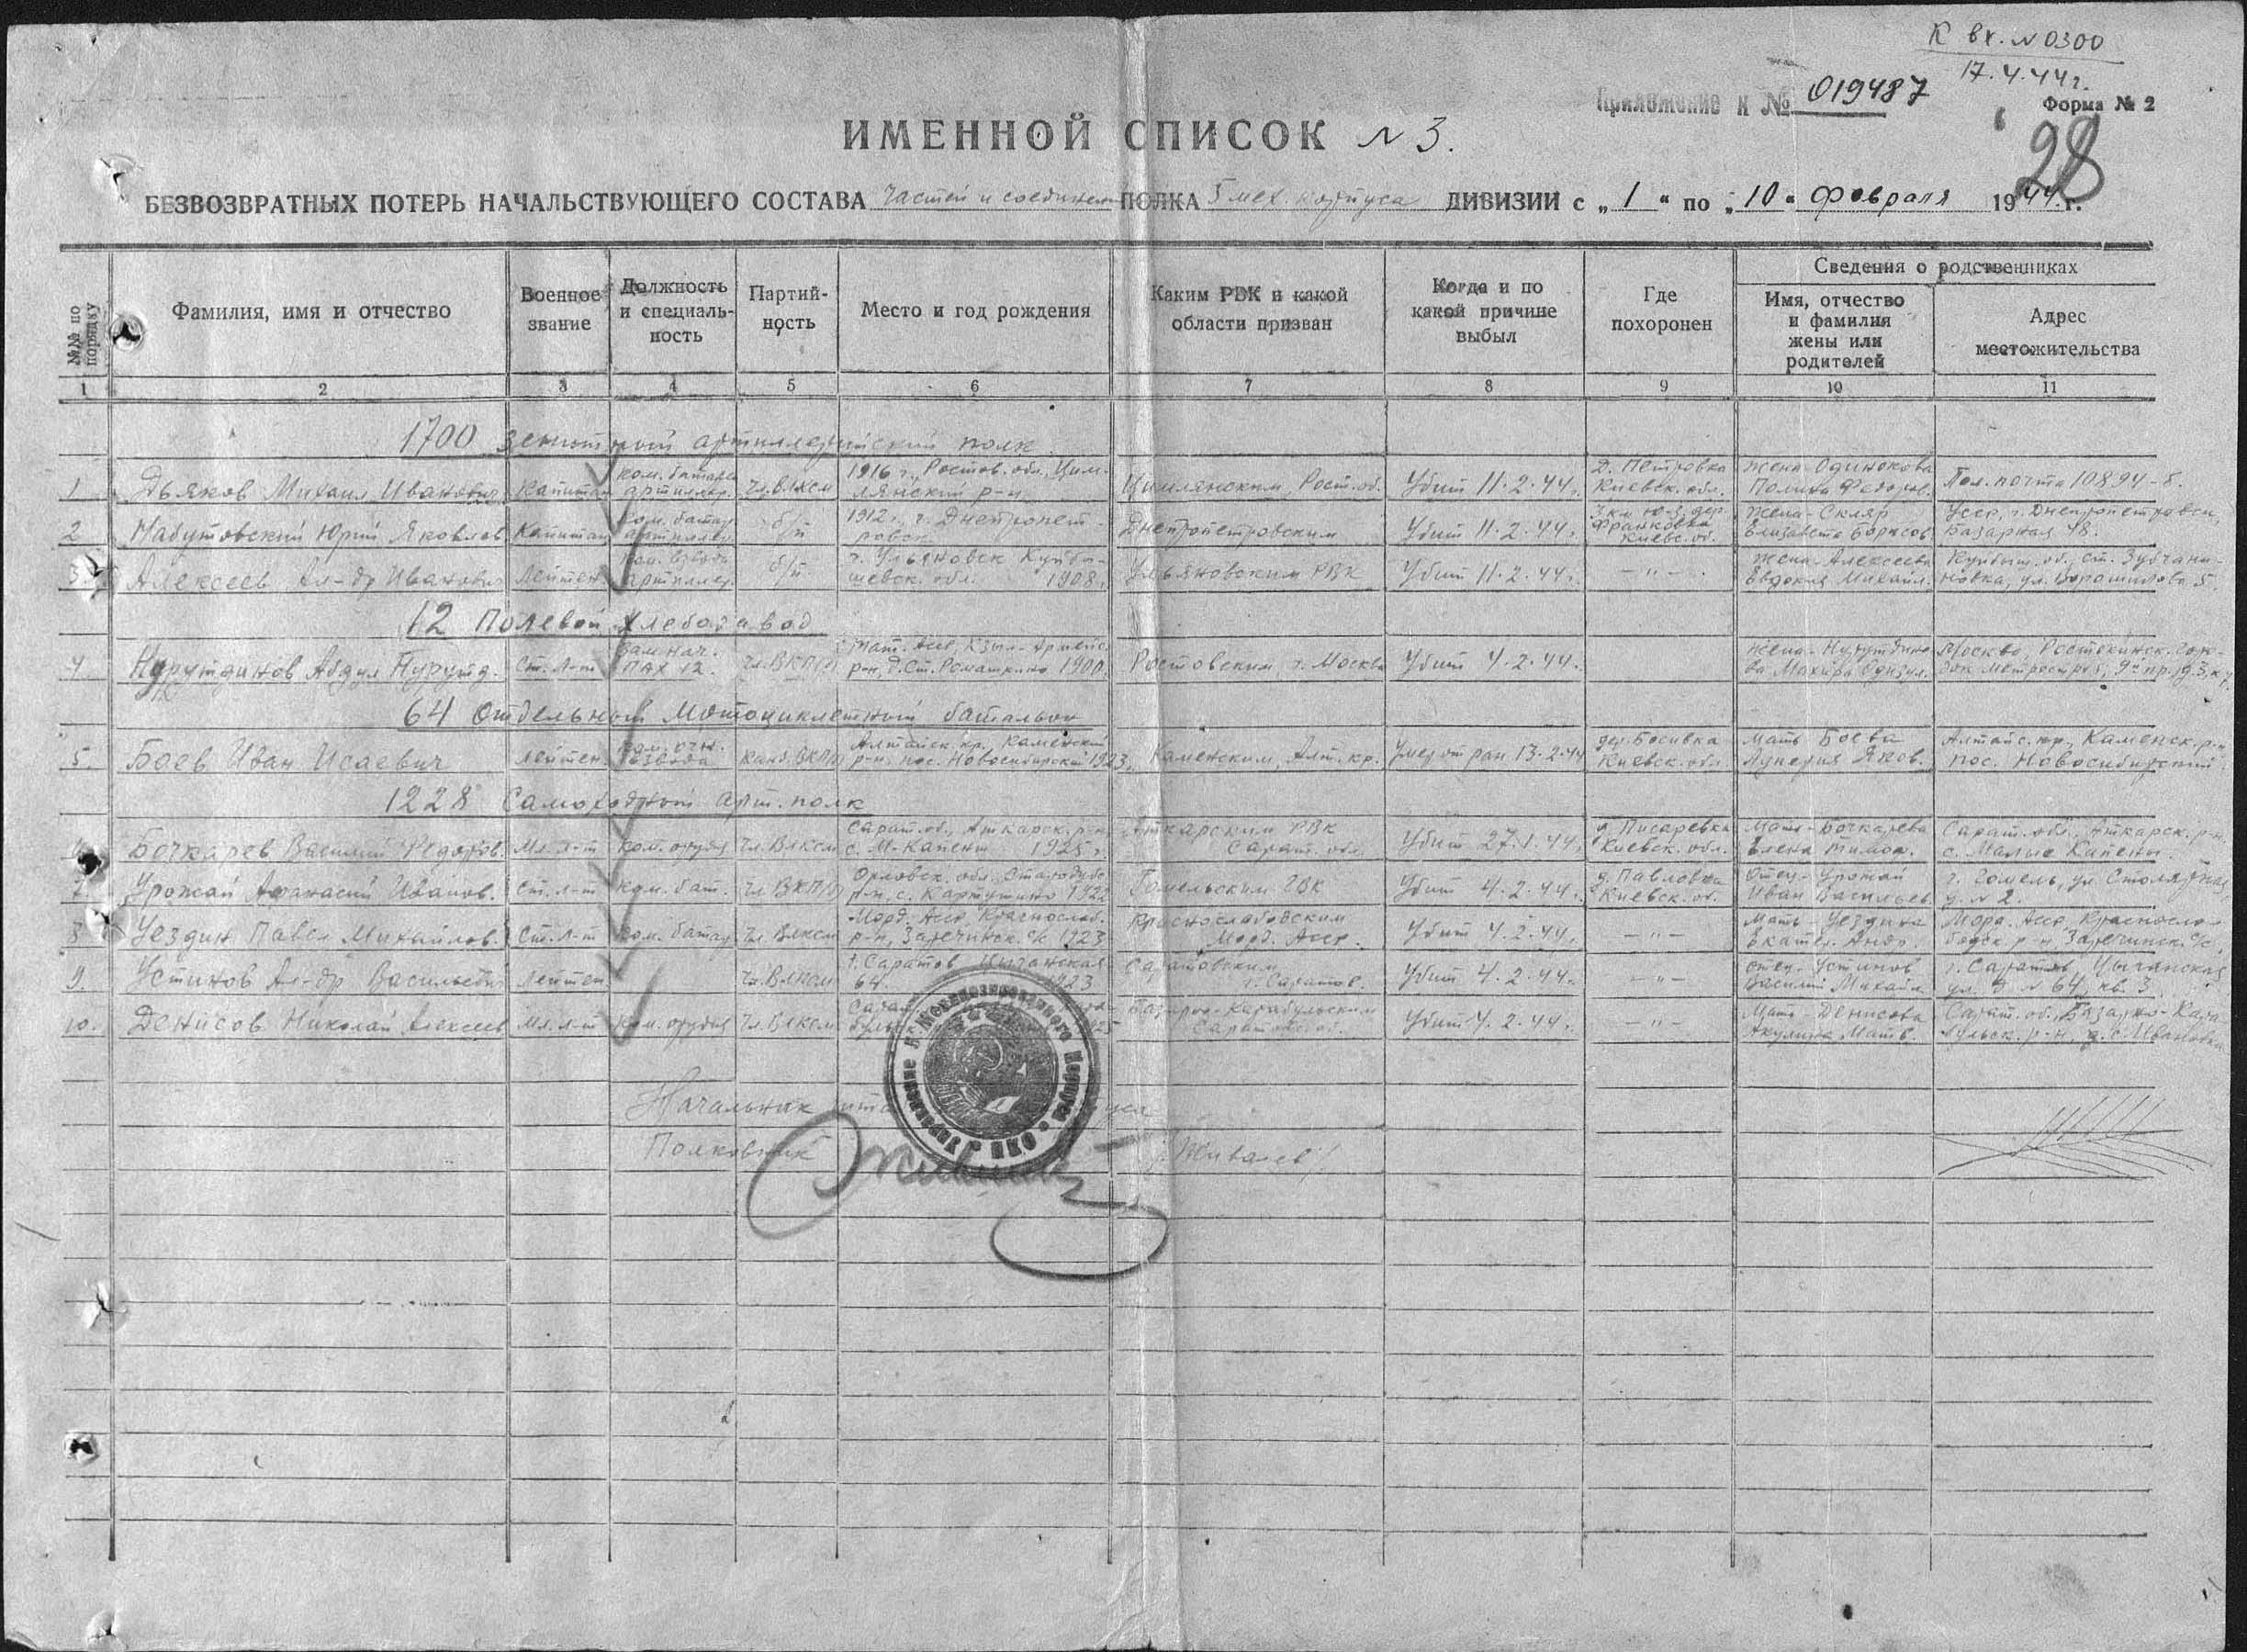 К вх. № 0300
17.4.44 г.
Приложение к № 019487
Форма № 2
28
ИМЕННОЙ СПИСОК № 3.
БЕЗВОЗВРАТНЫХ ПОТЕРЬ НАЧАЛЬСТВУЮЩЕГО СОСТАВА частей и соединен ПОЛКА 5 мех. корпуса ДИВИЗИИ с „1“ по „10“ февраля 1944 г.
№№ по порядку
Фамилия, имя и отчество
Военное звание
Должность и специальность
Партийность
Место и год рождения
Каким РВК и какой области призван
Когда и по какой причине выбыл
Где похоронен
Сведения о родственниках
Имя, отчество и фамилия жены или родителей
Адрес местожительства
1 2 3 4 5 6 7 8 9 10 11
1700 зенитный артиллерийский полк
1 Дьяков Михаил Иванович Капитан ком. батареи артиллер. Чл. ВЛКСМ 1916 г., Ростов. обл., Цимлянский р-н Цимлянским, Рост. об. Убит 11.2.44 г. д. Петровка Киевск. обл. Жена Одинокова Полина Федоров. Пол. почта 10894-Б.
2 Юрий Яковлев Капитан ком. батар. артиллер. б/п 1912 г., г. Днепропетровск Днепропетровским Убит 11.2.44 г. 3 км ю-з дер. Франковка Киевс. об. Жена-Скляр Елизавета Борисов. Усср, г. Днепропетровск, Базарная 48.
3. Алексеев Ал-др Иванович Лейтен. ком. взвода артиллер. б/п г. Ульяновск Куйбышевск. обл. 1908 г. Ульяновским РВК Убит 11.2.44 г. -"-. Жена-Алексеева Евдокия Михайл. Куйбыш. об., ст. Зубчаниновка, ул. Ворошилова 5.
12 Полевой хлебозавод
4 Нурутдинов Абдул Нурутд. Ст. л-т Зам. нач. ПАХ 12. Чл. ВКП/б Тат. Асср, р-н, д. Ст. Ромашкино 1900. Ростокским г. Москва Убит 4.2.44 г. Жена-Нурутдинова Москва, Ростокинск. 9й пр. д. 3, к 7.
64 Отдельный Мотоциклетный батальон
5. Боев Иван Исаевич Лейтен. взвода канд. ВКП/б Алтайск. кр., Каменский р-н, пос. Новосибирский 1923 г. Каменским, Алт. кр. Умер от ран 13.2.44 дер. Босивка Киевск. обл. Мать Боева Лукерия Яков. Алтайс. кр., Каменск. р-н пос. Новосибирский.
1228 Самоходный арт. полк
Бочкарев Василий Федоров. Мл. л-т ком. орудия Чл. ВЛКСМ Сарат. об., Аткарск. р-н, с. М-Капены 1925 г. Аткарским РВК Сарат. обл. Убит 27.1.44 г. д. Писаревка Киевск. обл. Мать-Бочкарева Елена Тимоф. Сарат. обл., Аткарск. р-н, с. Малые Капены.
7 Урожай Афанасий Иванов. Ст. л-т ком. бат. Чл ВКП/б Орловск. обл., Стародубс. р-н, с. Картушино 1922 Гомельским ГВК Убит 4.2.44 г. д. Павловка Киевск. об. Отец-Урожай Иван Васильев г. Гомель, ул. Столярная, д. № 2.
8 Уездин Павел Михайлов. Ст. л-т ком. батар Чл. ВЛКСМ Морд. Асср, Краснослоб. р-н, Заречинск. с/с 1923 Краснослободским Морд. Асср. Убит 4.2.44 г. -"- Мать-Уездина Екатер. Андр. Морд. Асср, Краснослободск. р-н, Заречинск. с/с,
9. Устинов Ал-др Васильевич Лейтен. Чл. ВЛКСМ г. Саратов Цыганская 64. 1923 Саратовским г. Саратов. Убит 4.2.44 г. -"- отец-Устинов Василий Михайл. г. Саратов, Цыганская ул. д № 64, кв. 3.
10. Денисов Николай Алексеев. Мл. л-т ком. орудия Чл. ВЛКСМ Базарно-Карабулькским Сарат. об. Убит 4.2.44 г. -"- Мать-Денисова Акулина Матв. Сарат. об., Базарно-Карабульск. р-н, с. Ивановка
Начальник шта
Полковник /Живалев/
Управление 5 Механизированного Корпуса НКО